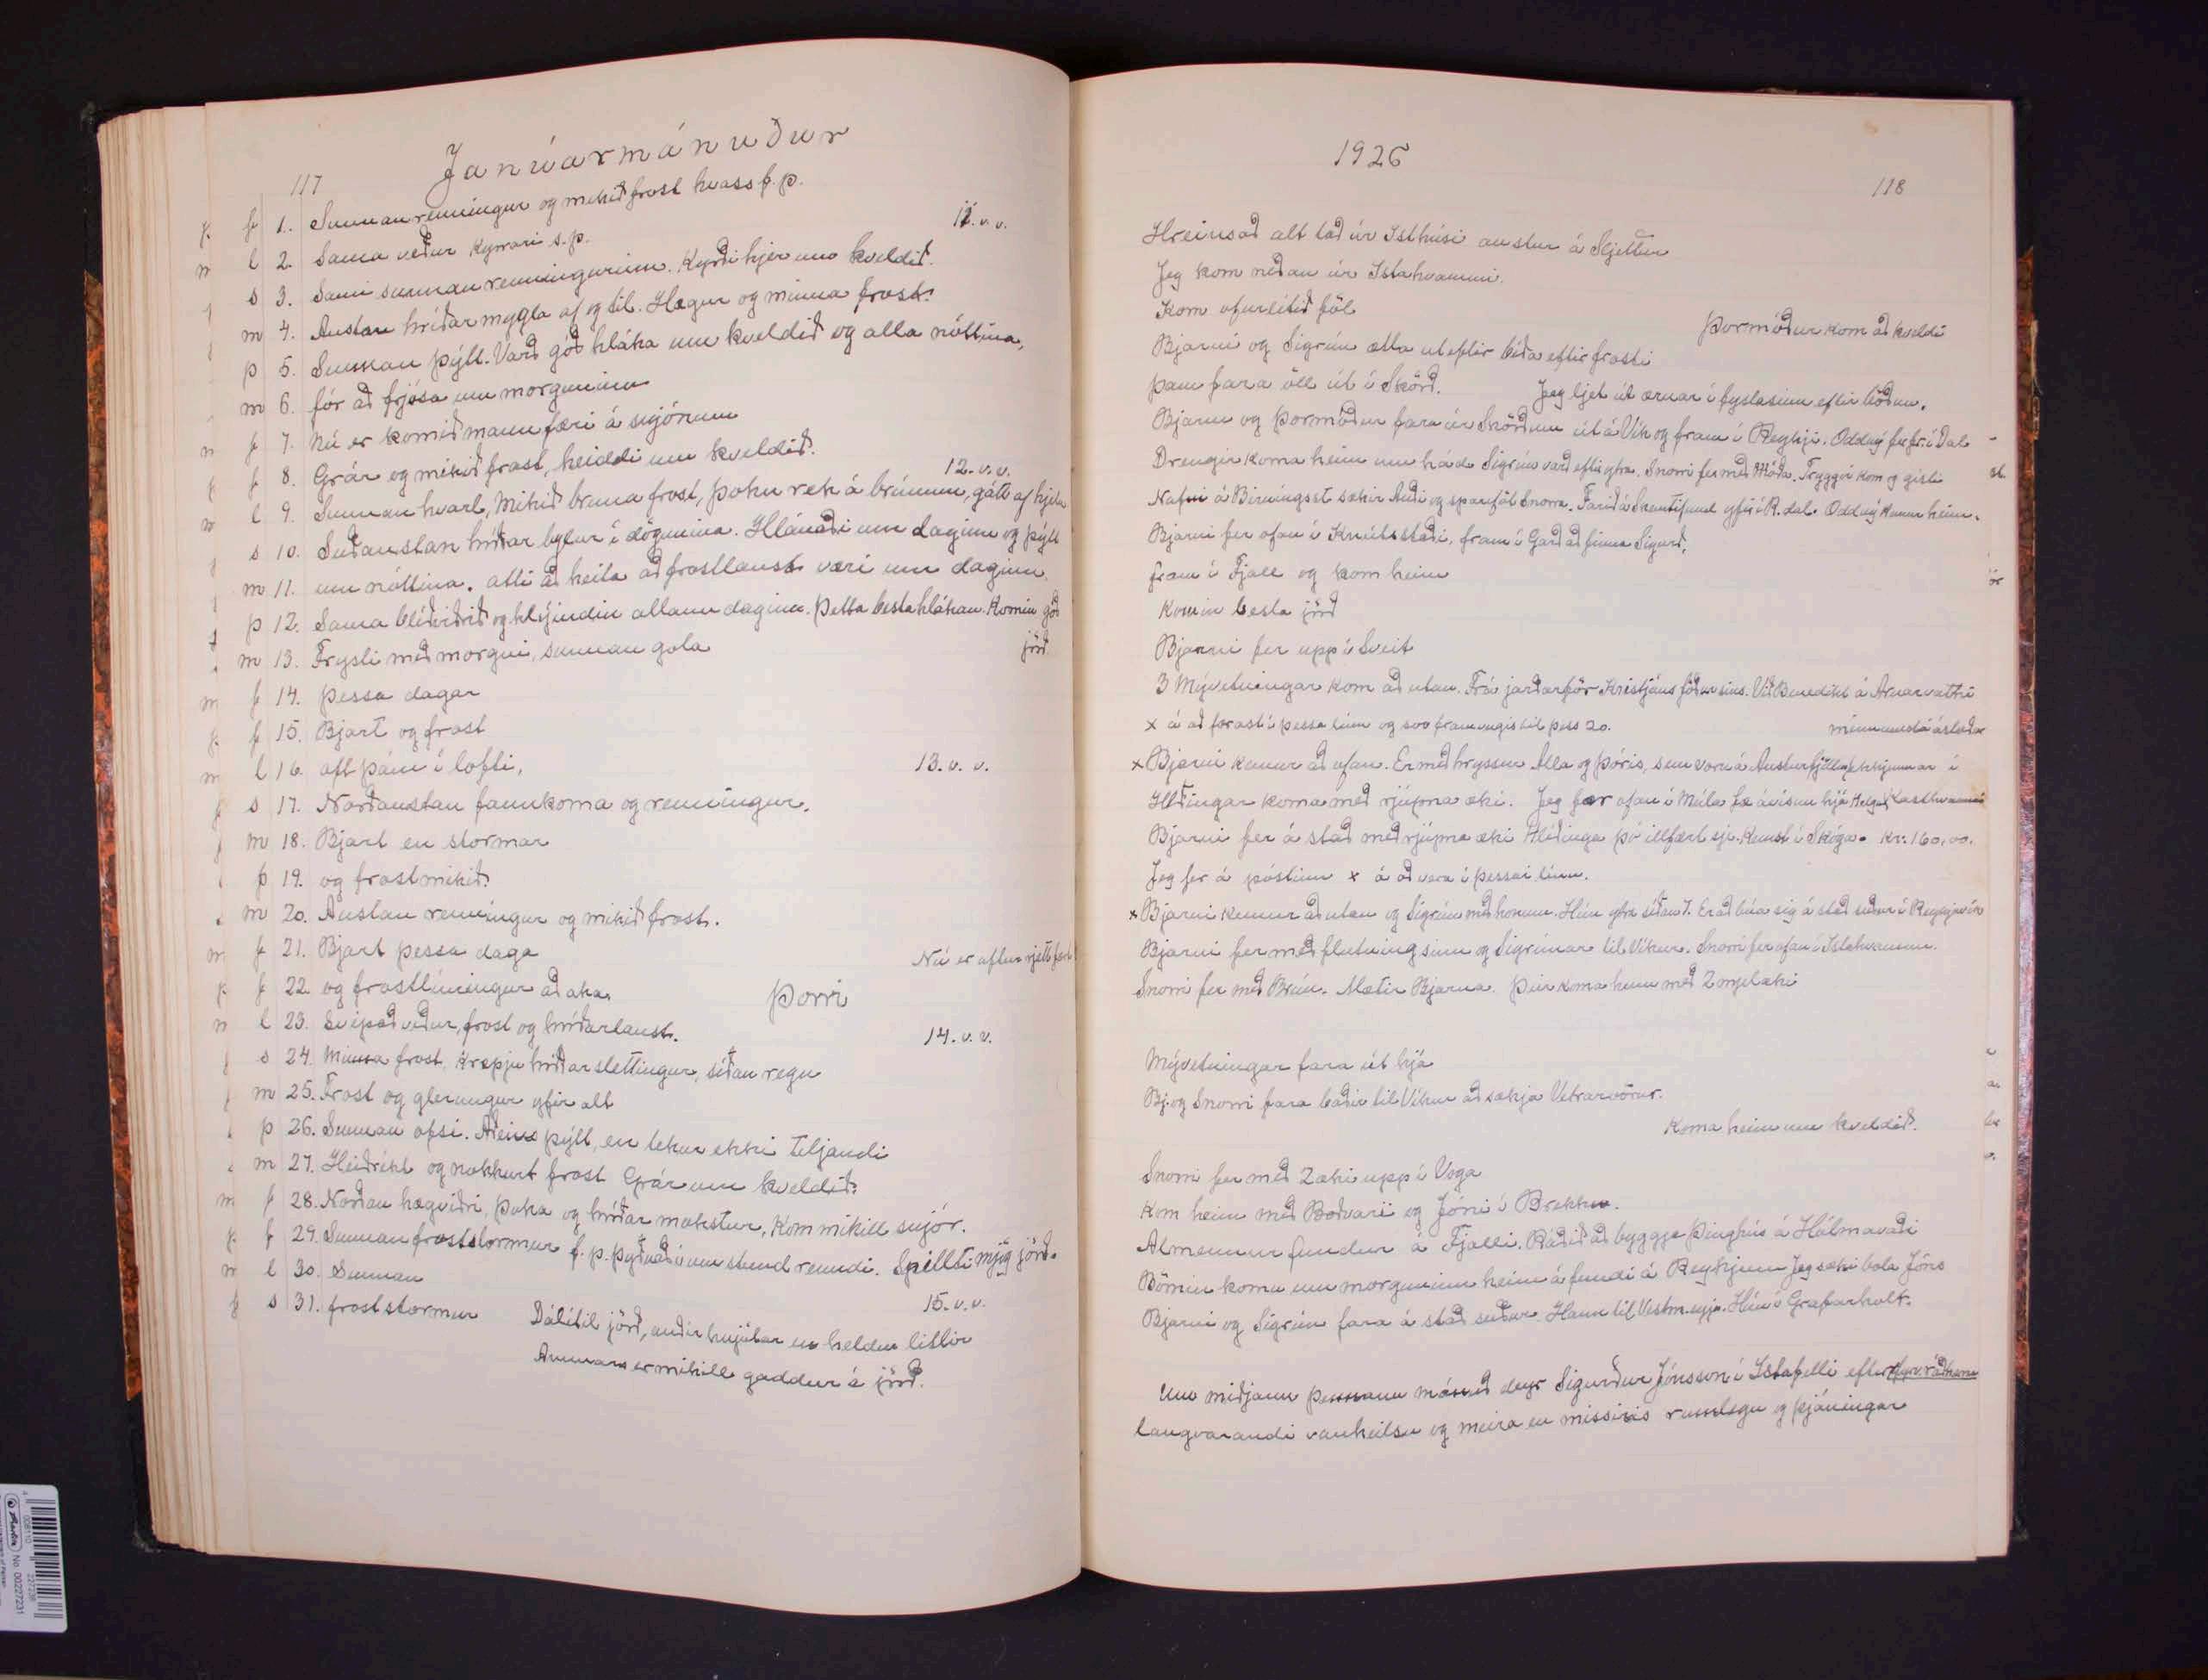 117 Janúarmánuður
f 1. Sunnan renningur og mikið frost hvass f.p.
l 2. Sama veður kyrrari s.p. 11. v.v.
s 3. Sami sunnan renningurinn. Kyrði hjer um kveldið.
m 4. Austan hríðar mygla af og til. Hægur og minna frost.
þ 5. Sunnan þýtt. Varð góð hláka um kveldið og alla nóttina,
m 6. fór að frjósa um morguninn
f 7. Nú er komið mannfæri á snjónum
f 8. Grár og mikið frost, heiddi um kveldið.
l 9. Sunnan hvarl, Mikið bruna frost, þoku rek á brúnum, gátt af hjelu 12. v.v.
s 10. Suðaustan hríðar bylur í dögunina. Hlánaði um daginn og þýtt
m 11. um nóttina. átti að heita að frostlaust væri um daginn.
þ 12. Sama blíðviðrið og hlýindin allann daginn. Þetta besta hlákan. Komin góð
m 13. Frysti með morgni, sunnan gola jörð.
f 14. þessa dagar
f 15. Bjart og frost
l 16. oft þám í lofti, 13. v. v.
s 17. Norðaustan fannkoma og renningur.
m 18. Bjart en stormar
þ 19. og frost mikið.
m 20. Austan renningur og mikið frost.
f 21. Bjart þessa daga
f 22. og frostlíningur að aka. Þorri Nú er aftur rjett fært
l 23. Svipað veður, frost og hríðarlaust. 14. v.v.
s 24. Minna frost, Krepju hríðar slettingur, síðan regn
m 25. Frost og glerungur yfir alt
þ 26. Sunnan ofsi. Aðeins þýtt, en tekur ekki teljandi
m 27. Heiðríkt og nokkurt frost Grár um kveldið.
f 28. Norðan hægviðri, þoka og hríðar mokstur, Kom mikill snjór.
f 29. Sunnan froststormur f.p. þyðnaði um stund renndi. Spillti mjög jörð.
l 30. Sunnan
s 31. froststormur 15. v.v.
Dálítil jörð, auðir hnjótar en heldur litlir
Annars er mikill gaddur á jörð.
1926
118
Hreinsað alt tað úr Isthúsi austur á Sljettu
Jeg kom neðan úr Istahvammi.
Kom ofurlítið föl
Þormóður kom að kveldi
Bjarni og Sigrún ætla út eftir bíða eftir frosti
þau fara öll út í Skörð. Jeg ljet út ærnar í fyrsta sinn eftir böðun.
Bjarni og Þormóður fara úr Skörðum út á Vík og fram í Reykji. Oddný fer fr. í Dal
Drengir koma heim um hád. Sigrún varð eftir ytra. Snorri fer með Móða. Tryggvi kom og gisti
á Birningsst. sækir Auði og Snorra. Farið á Skautifund yfir í R.dal. Oddný kemur heim.
Bjarni fer ofan í Knútsstaði, fram í Garð að finna Sigurð,
fram í Fjall og kom heim
Komin besta jörð
Bjarni fer upp í Sveit
3 Mývetningar kom að utan. Frá jarðarför Kristjáns föður síns. Við Benedikt á Arnarvatni
x á að færast í þessa línu og svo framvegis til þess 20.
x Bjarni kemur að ofan. Er með hryssur Alla og Þóris, sem voru á Austurfjöllum
Hlíðingar koma með rjúpna æki. Jeg fær ofan í Múla fæ ávísun hjá Helga Kasthvammi
Bjarni fer á stað með rjúpna æki Hlíðinga þó illfært sje. Kemst í Skóga. Kr. 160,00.
Jeg fer á póstinn x á að vera í þessari línu.
x Bjarni kemur að utan og Sigrún með honum. Hún ytra síðan 7. Er að búa sig á stað suður í Reykjavík
Bjarni fer með flutning sinn og Sigrúnar til Víkur. Snorri fer ofan í Istahvamm.
Snorri fer með Brún. Mætir Bjarna. Þeir koma heim með 2 mjelæki
Mývetningar fara út hjá
Bj. og Snorri fara báðir til Víkur að sækja Vetrarvörur.
Koma heim um kveldið.
Snorri fer með 2 æki upp í Voga
Kom heim með Böðvari og Jóni í Brekku.
Almennur fundur á Fjalli. Ráðið að byggja Þinghús á Hólmavaði
Börnin komu um morguninn heim á fundi á Reykjum Jeg sæki bola Jóns
Bjarni og Sigrún fara á stað suður. Hann til Vestm.eyja. Hún í Grafarholt.
Um miðjann þennann mánuð deyr Sigurður Jónsson í Ystafelli eftir fyrv. ráðherra
langvarandi vanheilsu og meira en missiris rumlegu og þjáningar